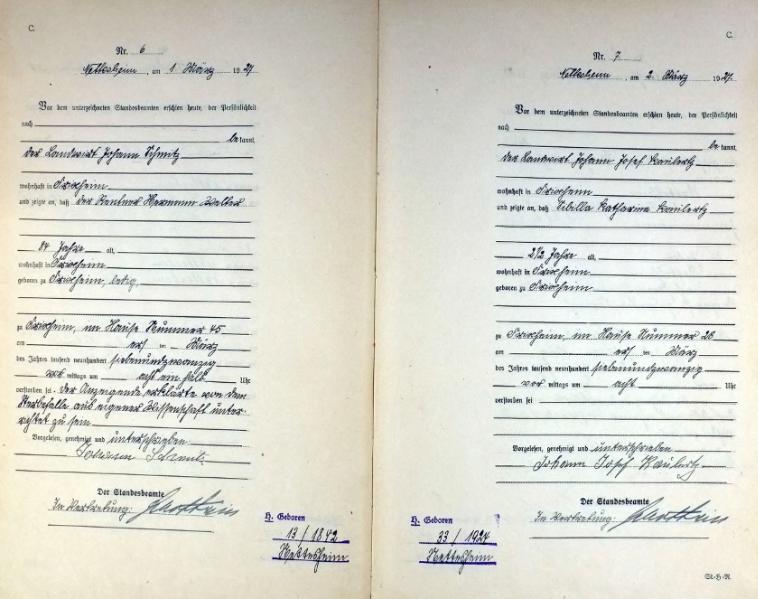 C.
Nr. 6
Nettesheim, am 1. März 1927
Vor dem unterzeichneten Standesbeamten erschien heute, der Persönlichkeit
nach
bekannt,
der Landwirt Johann Schmitz
wohnhaft in Frixheim
und zeigte an, daß der Rentner Hermann
84 Jahre alt,
wohnhaft in Frixheim
geboren zu Frixheim, ledig
zu Frixheim, im Hause Nummer 45
am ersten März
des Jahres tausend neunhundert siebenundzwanzig
vor mittags um acht ein halb Uhr
verstorben sei. Der Anzeigende erklärte von dem
Sterbefalle aus eigener Wissenschaft unter-
richtet zu sein
Vorgelesen, genehmigt und unterschrieben
Johann Schmitz
Der Standesbeamte
In Vertretung:
H. Geboren
13 / 1842
Nettesheim
C.
Nr. 7
Nettesheim, am 2. März 1927
Vor dem unterzeichneten Standesbeamten erschien heute, der Persönlichkeit
nach
bekannt,
der Landwirt Johann Josef Kaulertz
wohnhaft in Frixheim
und zeigte an, daß Sibilla Katharina Kaulertz
2 1/2 Jahre alt,
wohnhaft in Frixheim
geboren zu Frixheim
zu Frixheim, im Hause Nummer 26
am ersten März
des Jahres tausend neunhundert siebenundzwanzig
vor mittags um acht Uhr
verstorben sei
Vorgelesen, genehmigt und unterschrieben
Johann Josef Kaulertz
Der Standesbeamte
In Vertretung:
H. Geboren
33 / 1924
Nettesheim
St-H-R.